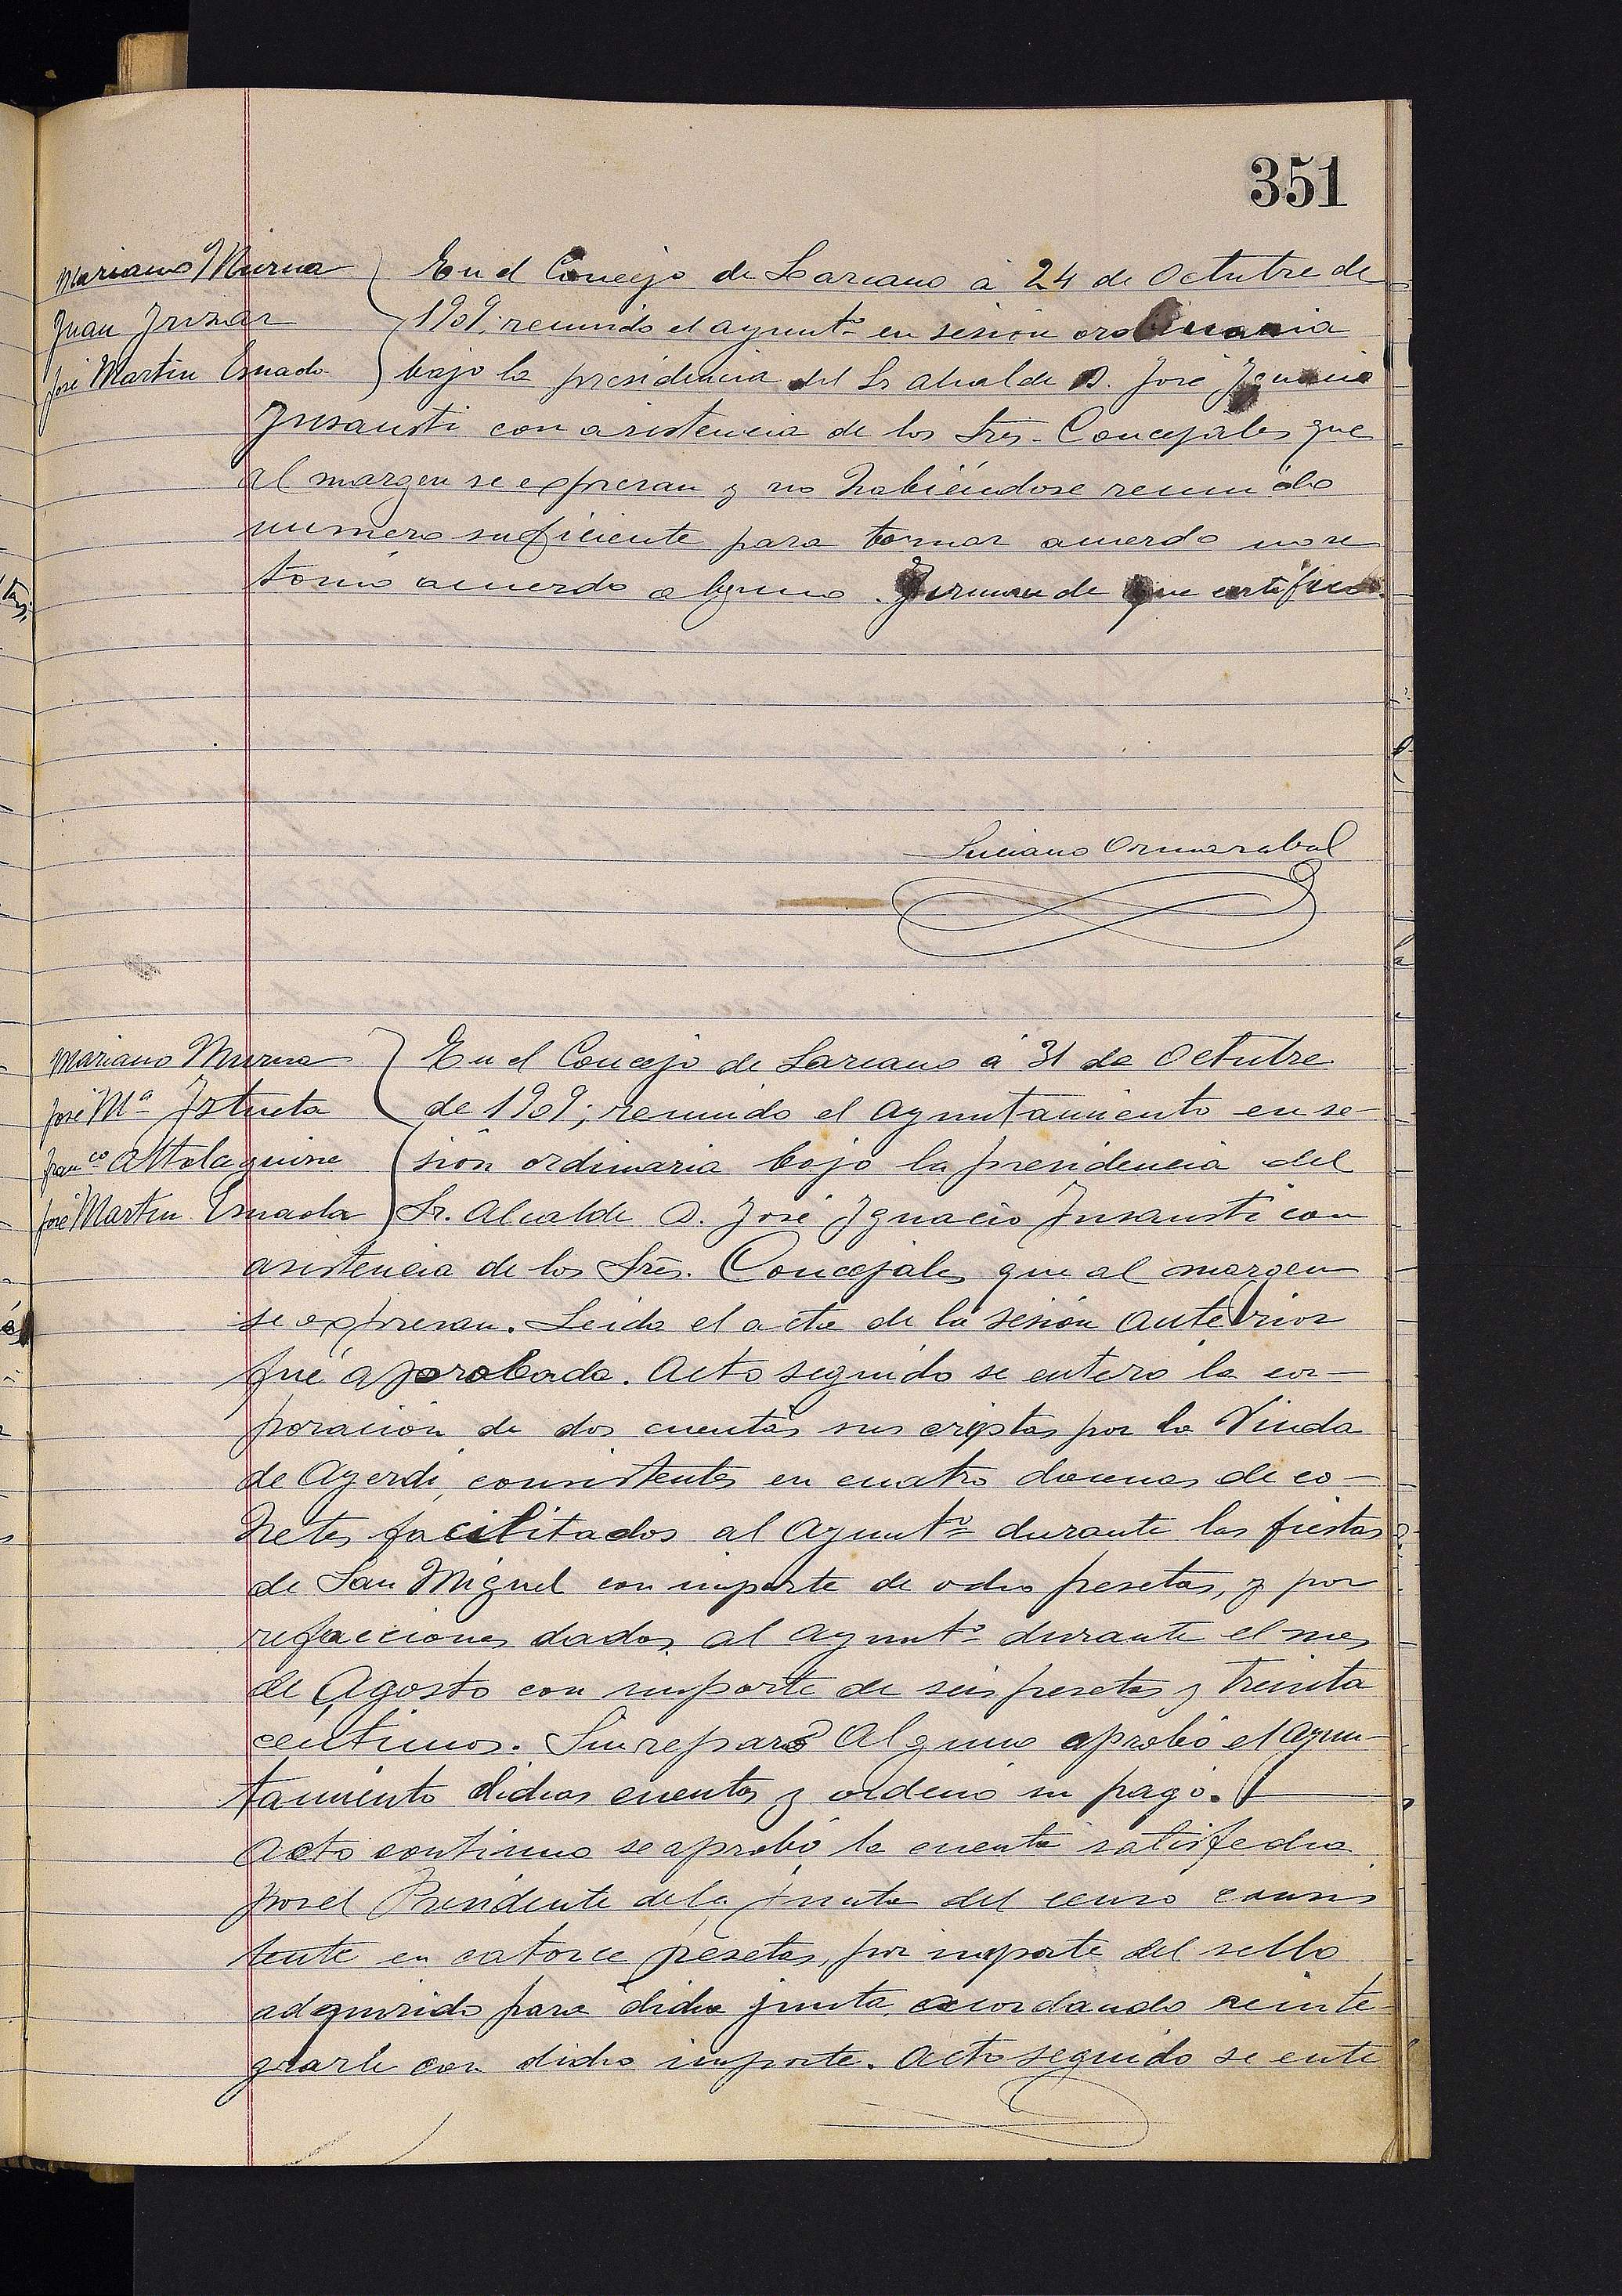 351
Mariano Murua
Juan Irizar
José Martin Esnaola
En el Concejo de Lazcano á 24 de Octubre de
1909; reunido el ayuntº en sesión ordinaria
bajo la presidencia del Sr alcalde D. José Ignacio
Insausti con asistencia de los Sres. Concejales que
al margen se expresan y no habiéndose reunido
numero suficiente para tomar acuerdo no se
tomó acuerdo alguno. Firman de que certifico.
Luciano Ormazabal
Mariano Murua
José Mª Iztueta
Franco Altolaguirre
José Martin Esnaola
En el Concejo de Lazcano á 31 de Octubre
de 1909; reunido el ayuntamiento en se-
sión ordinaria bajo la presidencia del
Sr. Alcalde D. José Ignacio Insausti con
asistencia de los Sres. Concejales que al margen
se expresan. Leida el acta de la sesión anterior
fué aprobada. Acto seguido se enteró la cor-
poración de dos cuentas suscriptas por la Viuda
de Ayerdi, consistentes en cuatro docenas de co-
hetes facilitados al Ayuntº durante las fiestas
de San Miguel con importe de ocho pesetas, y por
refacciones dadas al ayuntº durante el mes
de Agosto con importe de seis pesetas y treinta
céntimos. Sin reparo alguno aprobó el ayun-
tamiento dichas cuentas y ordenó su pago.
Acto continuo se aprobó la cuenta satisfecha
por el Presidente de la junta del censo consis
tente en catorce pesetas, por importe del sello
adquirido para dicha junta acordando reinte-
grarle con dicho importe. Acto seguido se ente